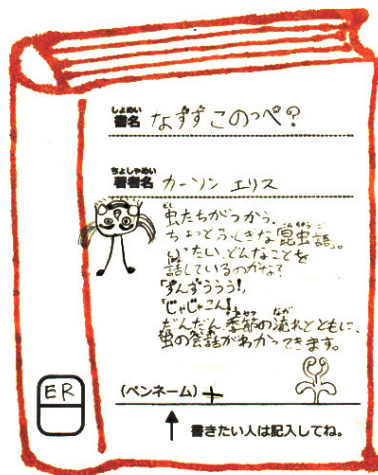 しょめい
書名 なずずこのっぺ?
ちょしゃめい
著者名 カーソン エリス
虫たちがつかう、
ちょっとふしぎな「昆虫語」。
いったい、どんなことを
話しているのかな?
「ずんずううう!」
「じゃじゃこん!」
だんだん季節の流れとともに、
虫の会話がわかってきます。
ER
(ペンネーム) +
書きたい人は記入してね。